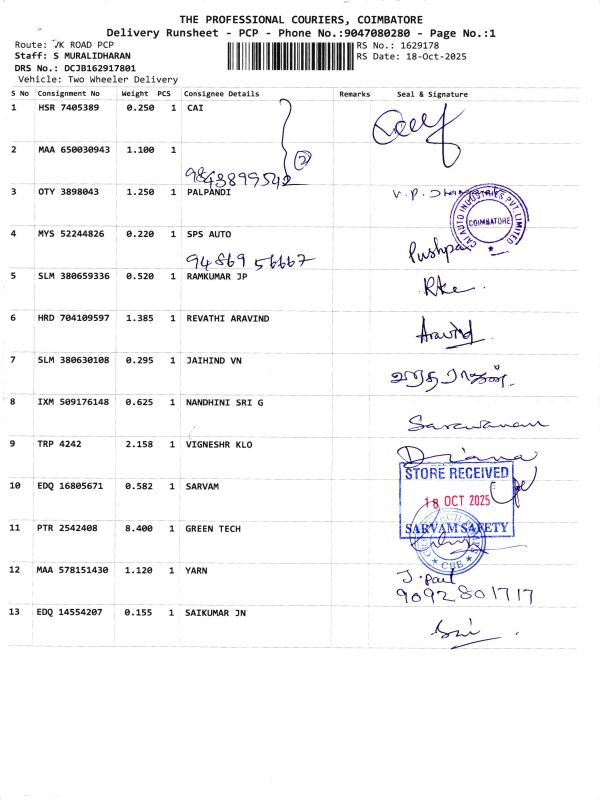 THE PROFESSIONAL COURIERS, COIMBATORE
Delivery Runsheet - PCP - Phone No.:9047080280 - Page No.:1
Route: JK ROAD PCP
RS No.: 1629178
Staff: S MURALIDHARAN
RS Date: 18-Oct-2025
DRS No.: DCJB162917801
Vehicle: Two Wheeler Delivery
S No Consignment No Weight PCS Consignee Details Remarks Seal & Signature
1 HSR 7405389 0.250 1 CAI
2 MAA 650030943 1.100 1
2
9843899542
3 OTY 3898043 1.250 1 PALPANDI
V.P.
CAI AUTO INDUSTRIES PVT LIMITED
COIMBATORE
4 MYS 52244826 0.220 1 SPS AUTO
Pushpa
94869 56667
5 SLM 380659336 0.520 1 RAMKUMAR JP
6 HRD 704109597 1.385 1 REVATHI ARAVIND
Aravind
7 SLM 380630108 0.295 1 JAIHIND VN
8 IXM 509176148 0.625 1 NANDHINI SRI G
Saravanan
9 TRP 4242 2.158 1 VIGNESHR KLO
Diana
STORE RECEIVED
10 EDQ 16805671 0.582 1 SARVAM
18 OCT 2025
11 PTR 2542408 8.400 1 GREEN TECH
SARVAM SAFETY
CBE
12 MAA 578151430 1.120 1 YARN
9092801717
13 EDQ 14554207 0.155 1 SAIKUMAR JN
Sai